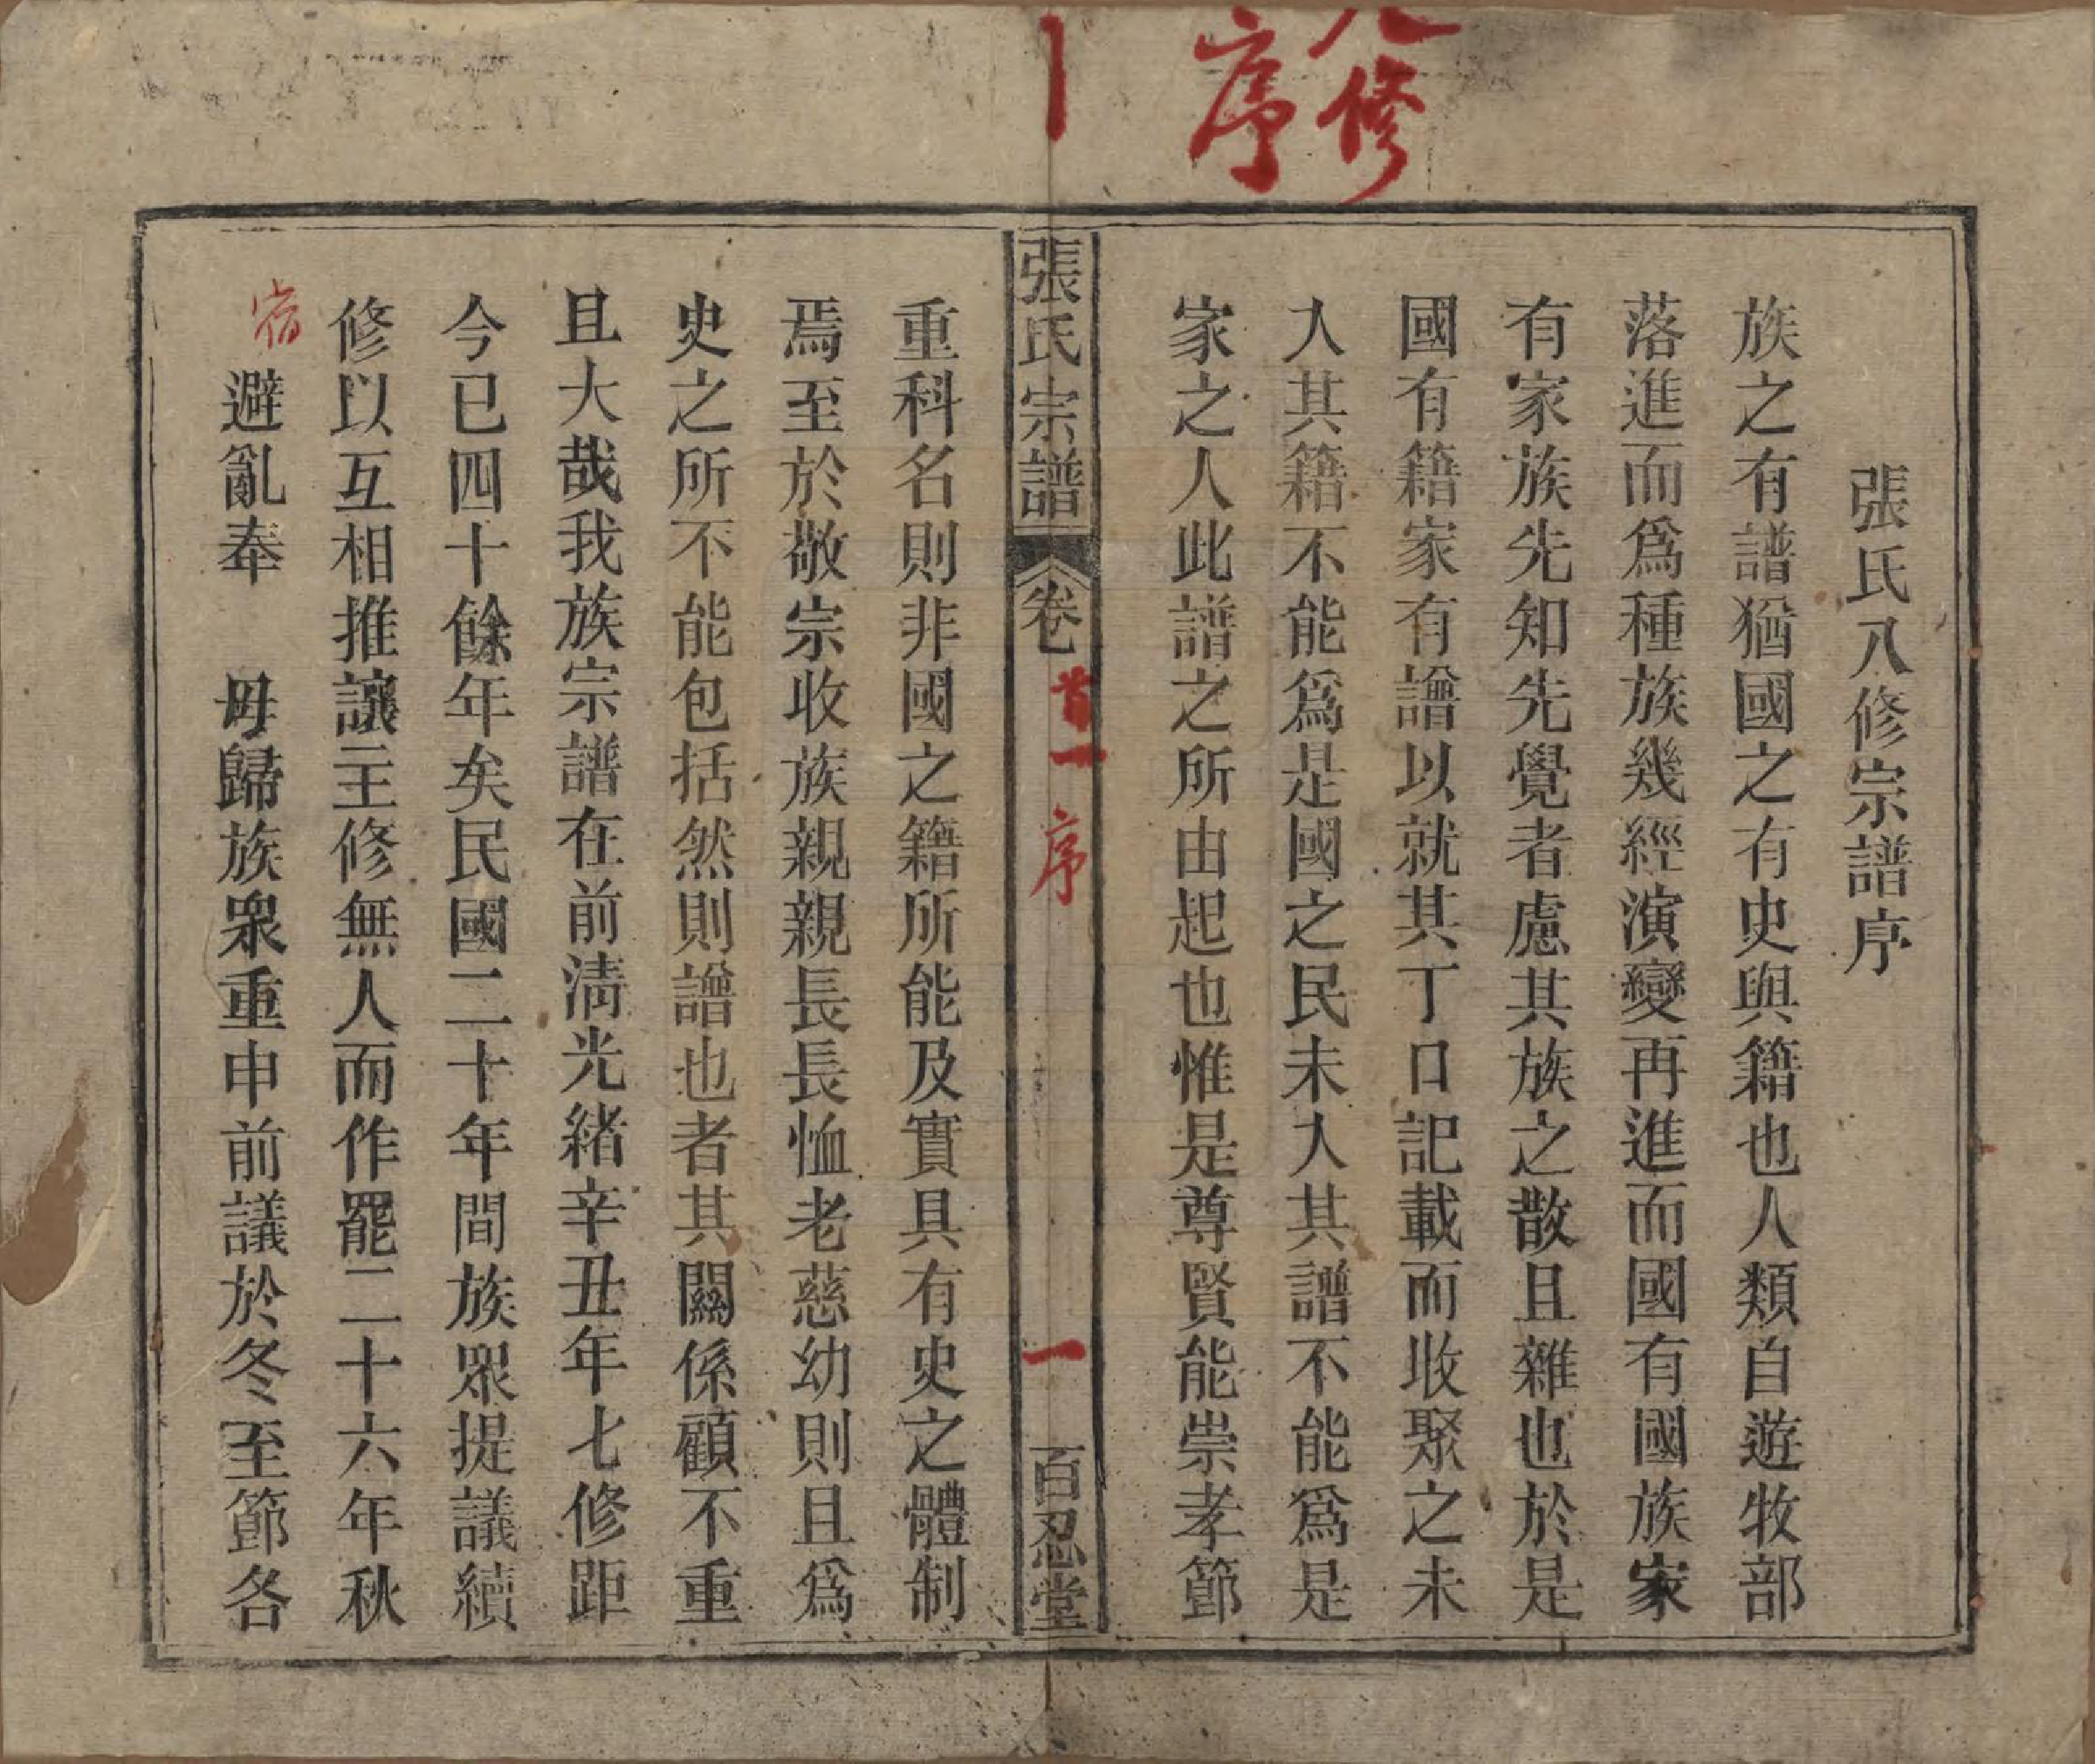 八修
序
張氏八修宗譜序
族之有譜猶國之有史與籍也人類自遊牧部
落進而爲種族幾經演變再進而國有國族家
有家族先知先覺者慮其族之散且雜也於是
國有籍家有譜以就其丁口記載而收聚之未
入其籍不能爲是國之民未入其譜不能爲是
家之人此譜之所由起也惟是尊賢能崇孝節
張氏宗譜 卷 首一 序 一 百忍堂
重科名則非國之籍所能及實具有史之體制
焉至於敬宗收族親親長長恤老慈幼則且爲
史之所不能包括然則譜也者其關係顧不重
且大哉我族宗譜在前清光緒辛丑年七修距
今已四十餘年矣民國二十年間族眾提議續
修以互相推讓主修無人而作罷二十六年秋
宿避亂奉 母歸族眾重申前議於冬至節各